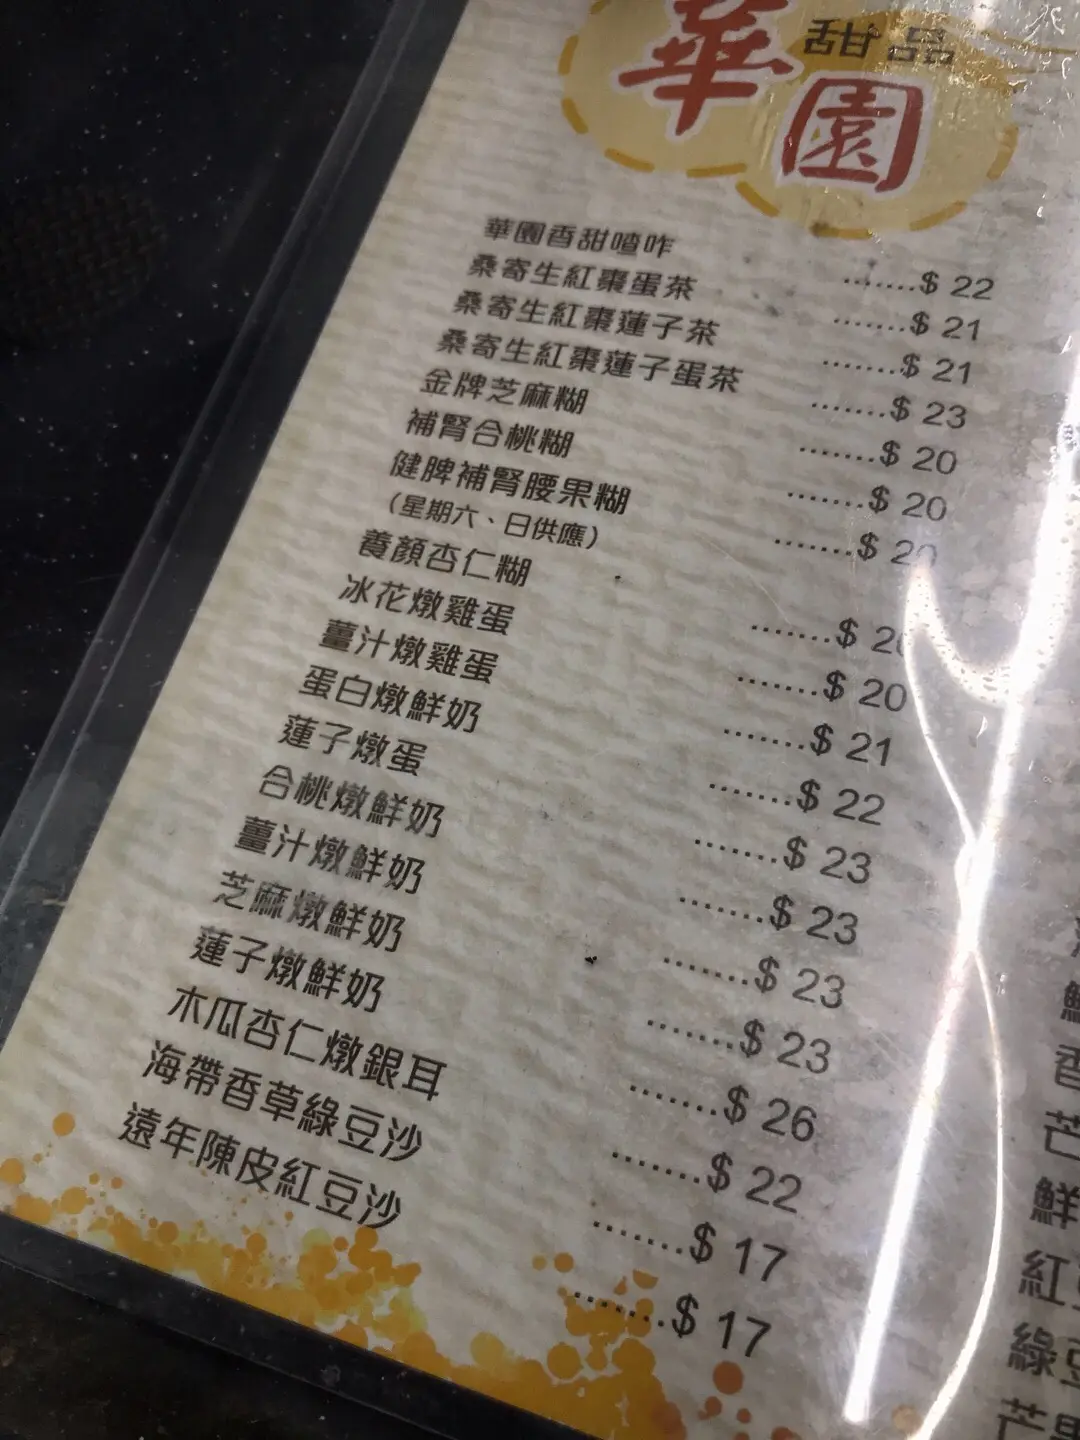 甜品
華園
華園香甜喳咋 .......$ 22
桑寄生紅棗蛋茶 .......$ 21
桑寄生紅棗蓮子茶 .......$ 21
桑寄生紅棗蓮子蛋茶 .......$ 23
金牌芝麻糊 .......$ 20
補腎合桃糊 .......$ 20
健脾補腎腰果糊 .......$ 20
(星期六、日供應)
養顏杏仁糊 .......$ 20
冰花燉雞蛋 .......$ 20
薑汁燉雞蛋 .......$ 21
蛋白燉鮮奶 .......$ 22
蓮子燉蛋 .......$ 23
合桃燉鮮奶 .......$ 23
薑汁燉鮮奶 .......$ 23
芝麻燉鮮奶 .......$ 23
蓮子燉鮮奶 .......$ 26
木瓜杏仁燉銀耳 .......$ 22
海帶香草綠豆沙 .......$ 17
遠年陳皮紅豆沙 .......$ 17
香
芒
鮮
紅
綠
芒